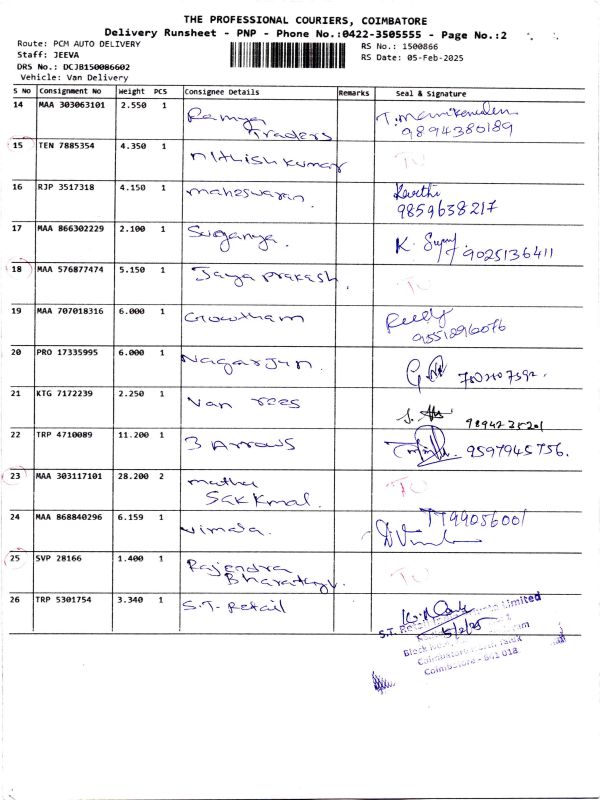 THE PROFESSIONAL COURIERS, COIMBATORE
Delivery Runsheet - PNP - Phone No.:0422-3505555 - Page No.:2
Route: PCM AUTO DELIVERY
RS No.: 1500866
Staff: JEEVA
RS Date: 05-Feb-2025
DRS No.: DCJB150086602
Vehicle: Van Delivery
S No Consignment No Weight PCS Consignee Details Remarks Seal & Signature
14 MAA 303063101 2.550 1 Ramya
Traders
9894380189
15 TEN 7885354 4.350 1 Nithish kumar TU
16 RJP 3517318 4.150 1 maheswaran. Karthi
9859638217
17 MAA 866302229 2.100 1 Suganya. K. 9025136411
18 MAA 576877474 5.150 1 Jaya prakash. TU
19 MAA 707018316 6.000 1 Gowtham
20 PRO 17335995 6.000 1 Nagarjun.
21 KTG 7172239 2.250 1 Van rees
9894235201
22 TRP 4710089 11.200 1 3 Arrows 9597945756.
23 MAA 303117101 28.200 2 mathu TU
24 MAA 868840296 6.159 1 vimala. 7799056001
25 SVP 28166 1.400 1 Rajendra TU
26 TRP 5301754 3.340 1 S.T. Retail
5/2/25
Coimbatore - 641 018